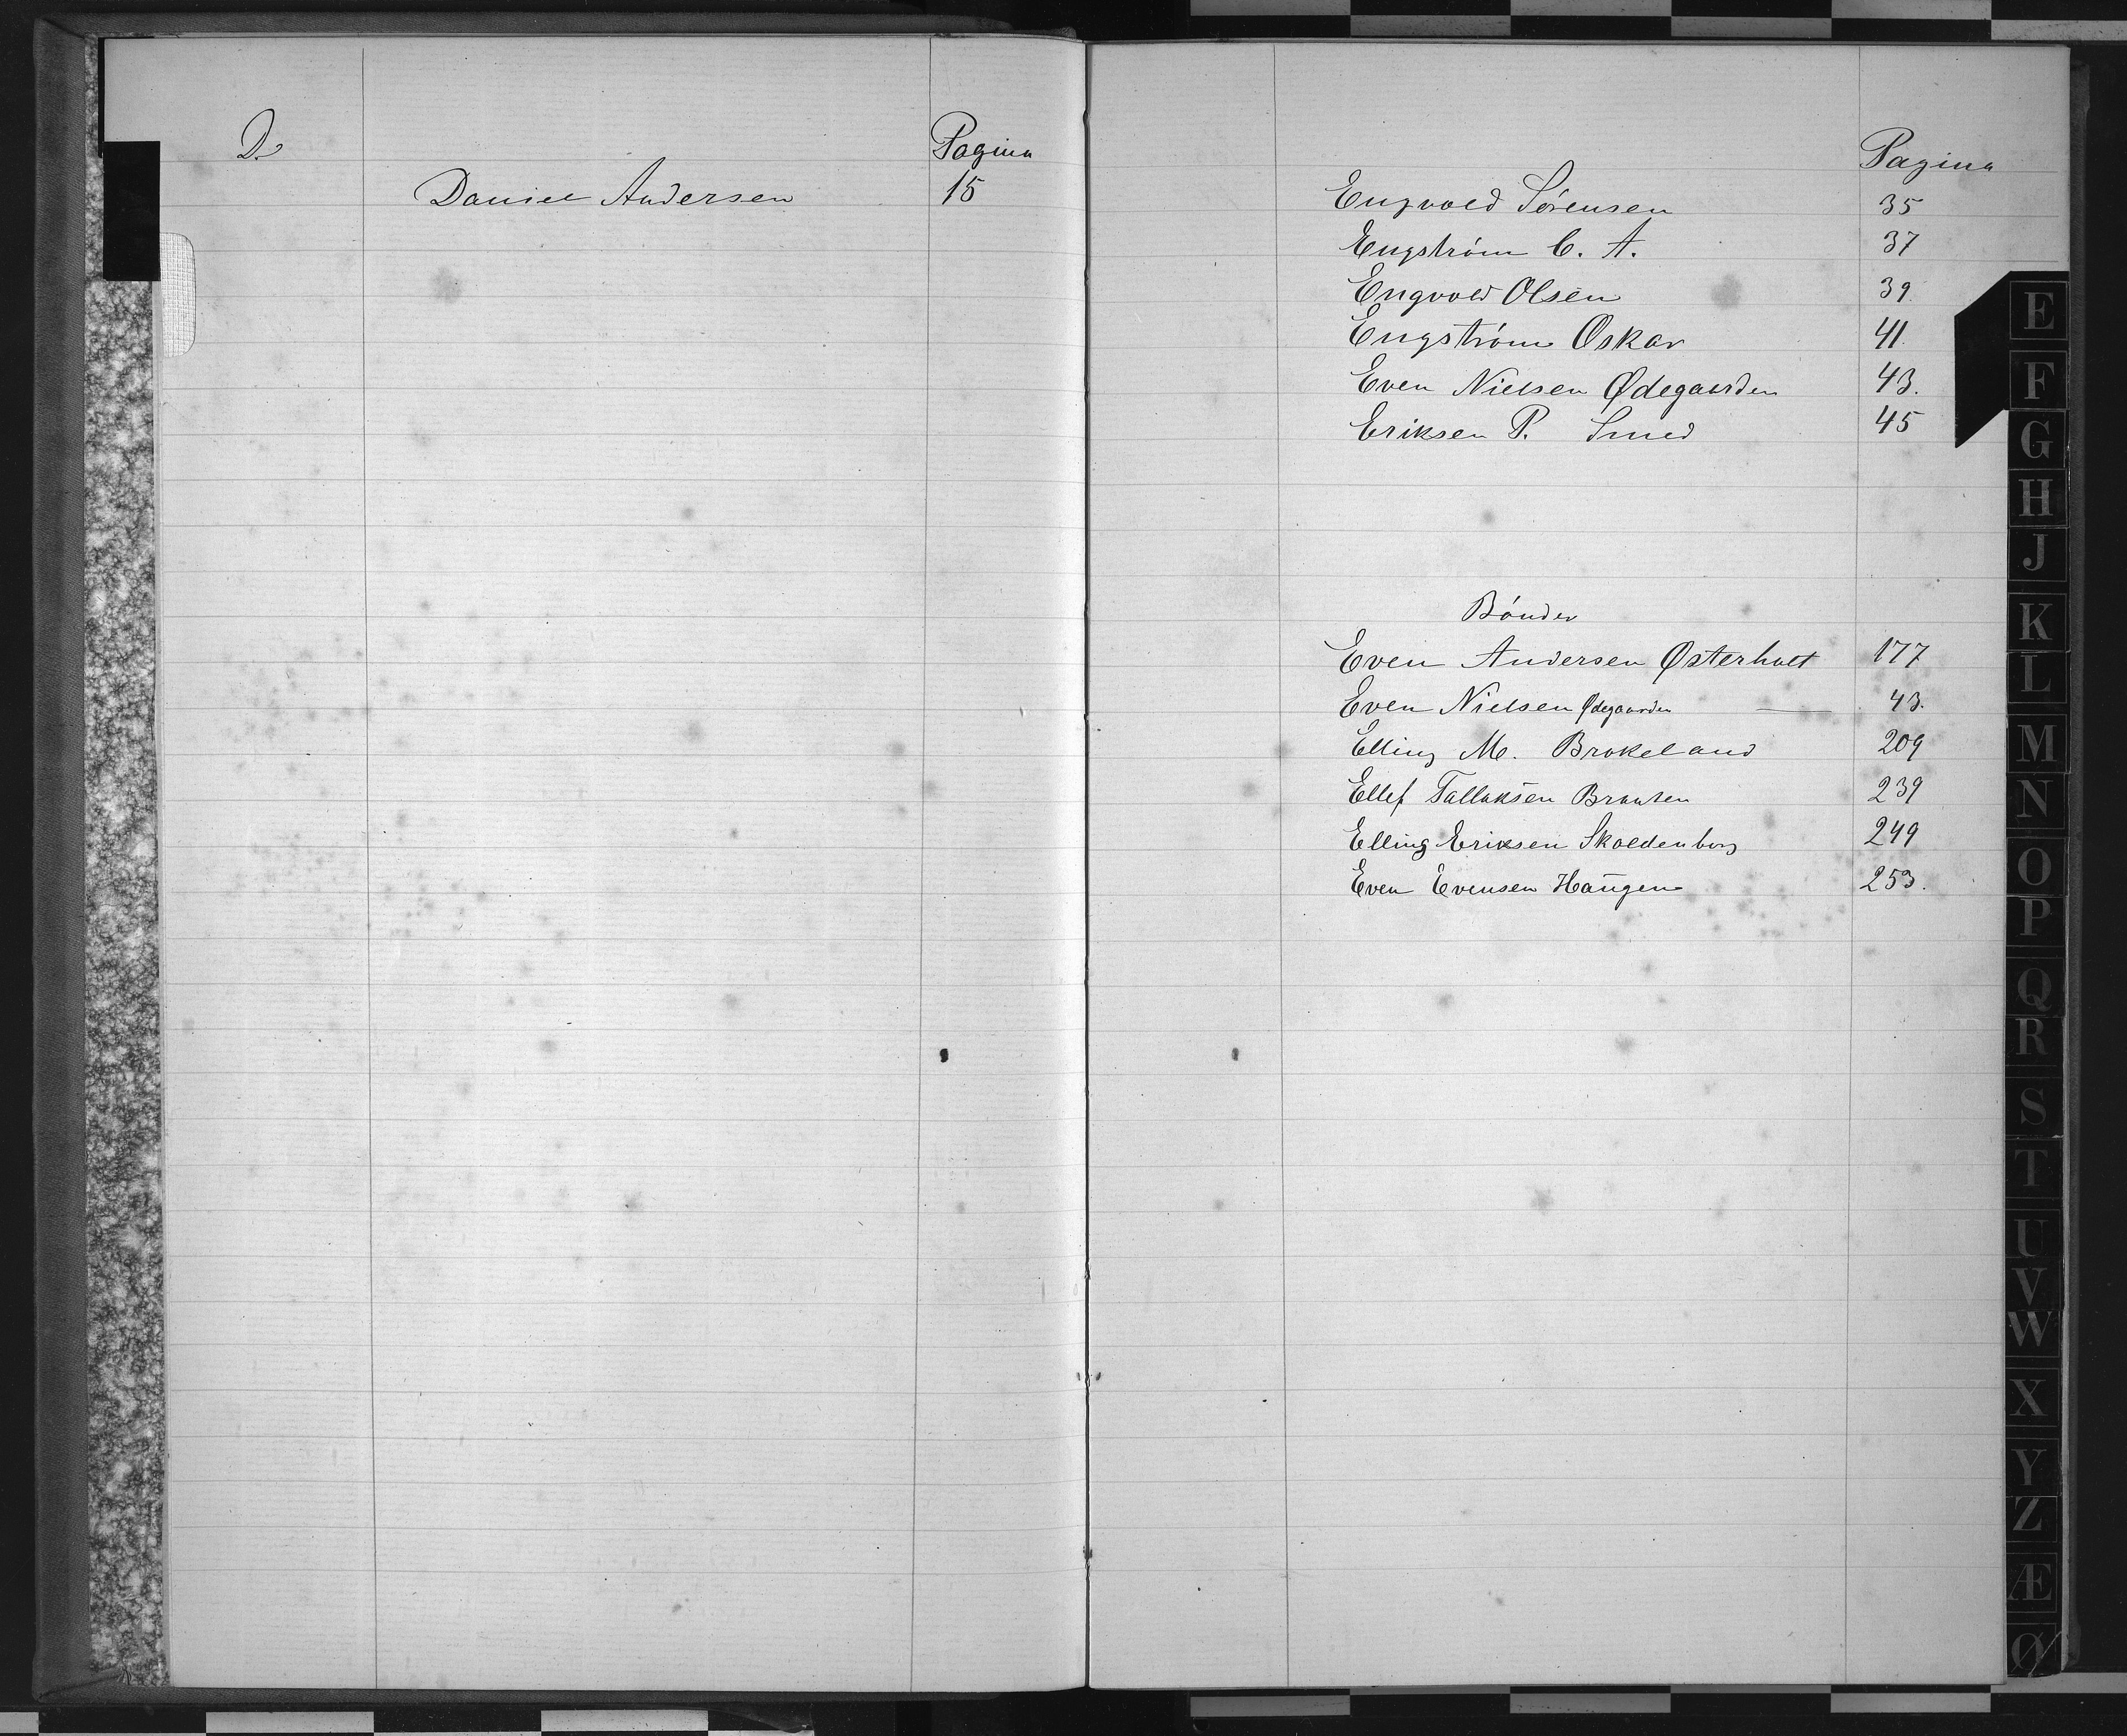 D. Pagina
Daniel Andersen 15
Pagina
Engvold Sørensen 35
Engstrøm C. A. 37
Engvold Olsen 39
Engstrøm Oskar 41
Even Nielsen Ødegaarden 43.
Eriksen P. Smed 45
Bønder
Even Andersen Østerholt 177
Even Nielsen Ødegaarden — 43.
Elling M. Brokeland 209
Ellef Tallaksen Braaten 239
Elling Eriksen Skoldenborg 249
Even Evensen Haugen 253.
E
F
G
H
J
K
L
M
N
O
P
Q
R
S
T
U
V
W
X
Y
Z
Æ
Ø